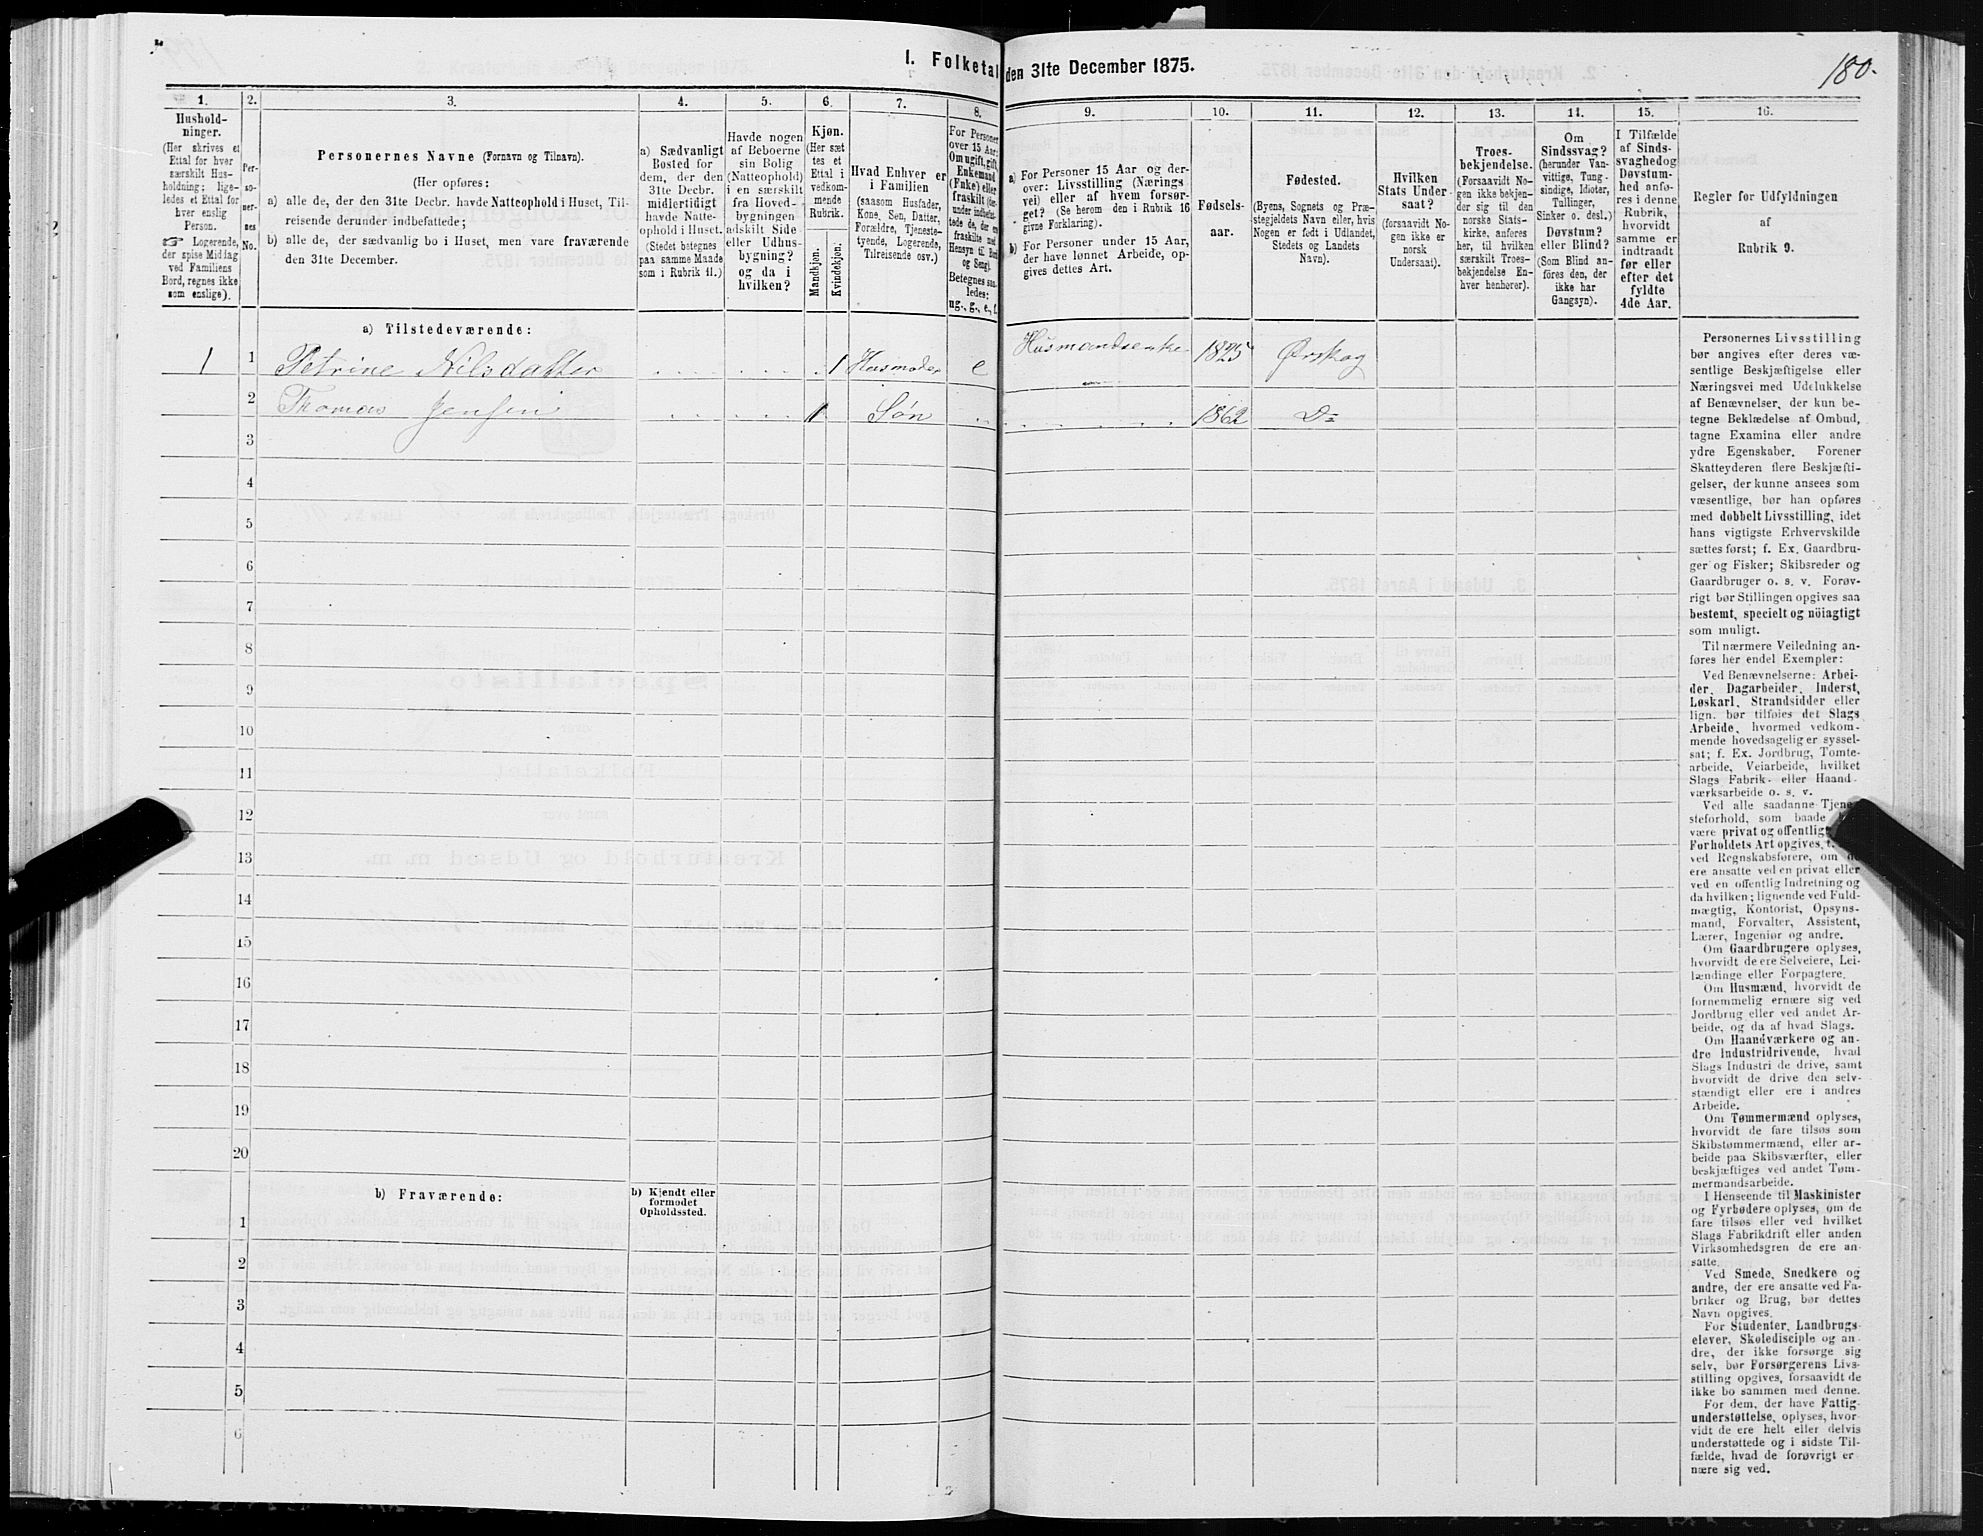 180.
1. Folketal den 31te December 1875.
1.
2.
3.
4.
5.
6.
7.
8.
9.
10.
11.
12.
13.
14.
15.
16.
Hushold-
ninger.
(Her skrives et
Ettal for hver
særskilt Hus-
holdning; lige-
ledes et Ettal for
hver enslig
Person.
☞ Logerende,
der spise Middag
ved Familiens
Bord, regnes ikke
som enslige).
Per-
so-
ner-
nes
No.
Personernes Navne (Fornavn og Tilnavn).
(Her opføres:
a) alle de, der den 31te Decbr. havde Natteophold i Huset, Til-
reisende derunder indbefattede;
b) alle de, der sædvanlig bo i Huset, men vare fraværende
den 31te December.
a) Sædvanligt
Bosted for
dem, der den
31te Decbr.
midlertidigt
havde Natte-
ophold i Huset.
(Stedet betegnes
paa samme Maade
som i Rubrik 11.)
Havde nogen
af Beboerne
sin Bolig
(Natteophold)
i en særskilt
fra Hoved-
bygningen
adskilt Side
eller Udhus-
bygning?
og da i
hvilken?
Kjøn.
(Her sæt
tes et
Ettal i
vedkom-
mende
Rubrik.
Mandkjøn.
Kvindekjøn.
Hvad Enhver er
i Familien
(saasom Husfader,
Kone, Søn, Datter,
Forældre, Tjeneste-
tyende, Logerende,
Tilreisende osv.)
For Personer
over 15 Aar:
Om ugift, gift,
Enkemand
(Enke) eller
fraskilt
Betegnes saa-
ledes:
ug., g., e., f.
a) For Personer 15 Aar og der-
over: Livsstilling (Nærings
vei) eller af hvem forsør-
get? (Se herom den i Rubrik 16
givne Forklaring).
b) For Personer under 15 Aar,
der have lønnet Arbeide, op-
gives dettes Art.
Fødsels-
aar.
Fødested.
(Byens, Sognets og Præ-
stegjeldets Navn eller, hvis
Nogen er født i Udlandet,
Stedets og Landets
Navn).
Hvilken
Stats Under-
saat?
(forsaavidt No-
gen ikke er
norsk
Undersaat).
Troes-
bekjendelse.
(Forsaavidt No-
gen ikke bekjen-
der sig til den
norske Stats-
kirke, anføres
her, til hvilken
særskilt Troes-
bekjendelse En-
hver henhører).
Om
Sindssvag?
(herunder Van-
vittige, Tung-
sindige, Idioter,
Tullinger,
Sinker o. desl.)
Døvstum?
eller Blind?
(Som Blind an-
føres den, der
ikke har
Gangsyn).
I Tilfælde
af Sinds-
svaghed og
Døvstum-
hed anfø-
res i denne
Rubrik,
hvorvidt
samme er
indtraadt
før eller
efter det
fyldte
4de Aar.
Regler for Udfyldningen
af
Rubrik 9.
a) Tilstedeværende:
1 1 Petrine Nilsdatter 1 Husmoder e Husmandsenke 1825 Ørskog
2 Thomas Jensen 1 Søn 1862 Do
3
4
5
6
7
8
9
10
11
12
13
14
15
16
17
18
19
20
b) Fraværende:
b) Kjendt eller
formodet
Opholdssted.
1
2
3
4
5
6
Personernes Livsstilling
bør angives efter deres væ-
sentlige Beskjæftigelse eller
Næringsvei med Udelukkelse
af Benævnelser, der kun be-
tegne Beklædelse af Ombud,
tagne Examina eller andre
ydre Egenskaber. Forener
Skatteyderen flere Beskjæfti-
gelser, der kunne ansees som
væsentlige, bør han opføres
med dobbelt Livsstilling, idet
hans vigtigste Erhvervskilde
sættes først; f. Ex. Gaardbru-
ger og Fisker; Skibsreder og
Gaardbruger o. s. v. Forøv-
rigt bør Stillingen opgives saa
bestemt, specielt og nöiagtigt
som muligt.
Til nærmere Veiledning an-
føres her endel Exempler:
Ved Benævnelserne: Arbei-
der, Dagarbeider, Inderst,
Løskarl, Strandsidder eller
lign. bør tilføies det Slags
Arbeide, hvormed vedkom-
mende hovedsagelig er syssel-
sat; f. Ex. Jordbrug, Tomte-
arbeide, Veiarbeide, hvilket
Slags Fabrik- eller Haand-
værksarbeide o. s. v.
Ved alle saadanne Tjene-
steforhold, som baade
være privat og offentligt,
Forholdets Art opgives,
ved Regnskabsførere, om de
ere ansatte ved en privat eller
ved en offentlig Indretning og
da hvilken; lignende ved Fuld-
mægtig, Kontorist, Opsyns-
mand, Forvalter, Assistent,
Lærer, Ingeniør og andre.
Om Gaardbrugere oplyses,
hvorvidt de ere Selveiere, Lei-
lændinge eller Forpagtere.
Om Husmænd, hvorvidt de
fornemmelig ernære sig ved
Jordbrug eller ved andet Ar-
beide, og da af hvad Slags.
Om Haandværkere og an-
dre Industridrivende, hvad
Slags Industri de drive, samt
hvorvidt de drive den selv-
stændigt eller ere i andres
Arbeide.
Om Tømmermænd oplyses,
hvorvidt de fare tilsøs som
Skibstømmermænd, eller ar-
beide paa Skibsværfter, eller
beskjæftiges ved andet Tøm-
mermandsarbeide.
I Henseende til Maskinister
og Fyrbødere oplyses, om de
fare tilsøs eller ved hvilket
Slags Fabrikdrift eller anden
Virksomhedsgren de ere an-
satte.
Ved Smede, Snedkere og
andre, der ere ansatte ved Fa-
briker og Brug, bør dettes
Navn opgives.
For Studenter, Landbrugs-
elever, Skoledisciple og an-
dre, der ikke forsørge sig
selv, bør Forsørgerens Livs-
stilling opgives, forsaavidt de
ikke bo sammen med denne.
For dem, der have Fattig-
understøttelse, oplyses, hvor-
vidt de ere helt eller delvis
understøttede og i sidste Til-
fælde, hvad de forøvrigt er-
nære sig ved.